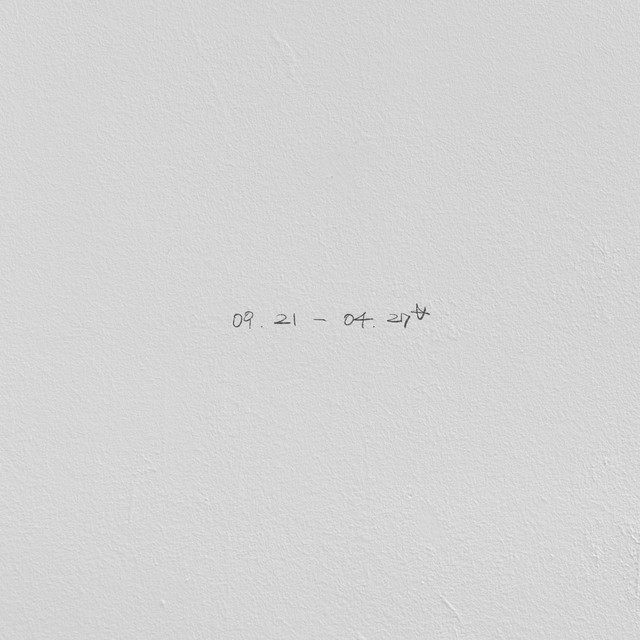 09. 21 - 04. 27☆